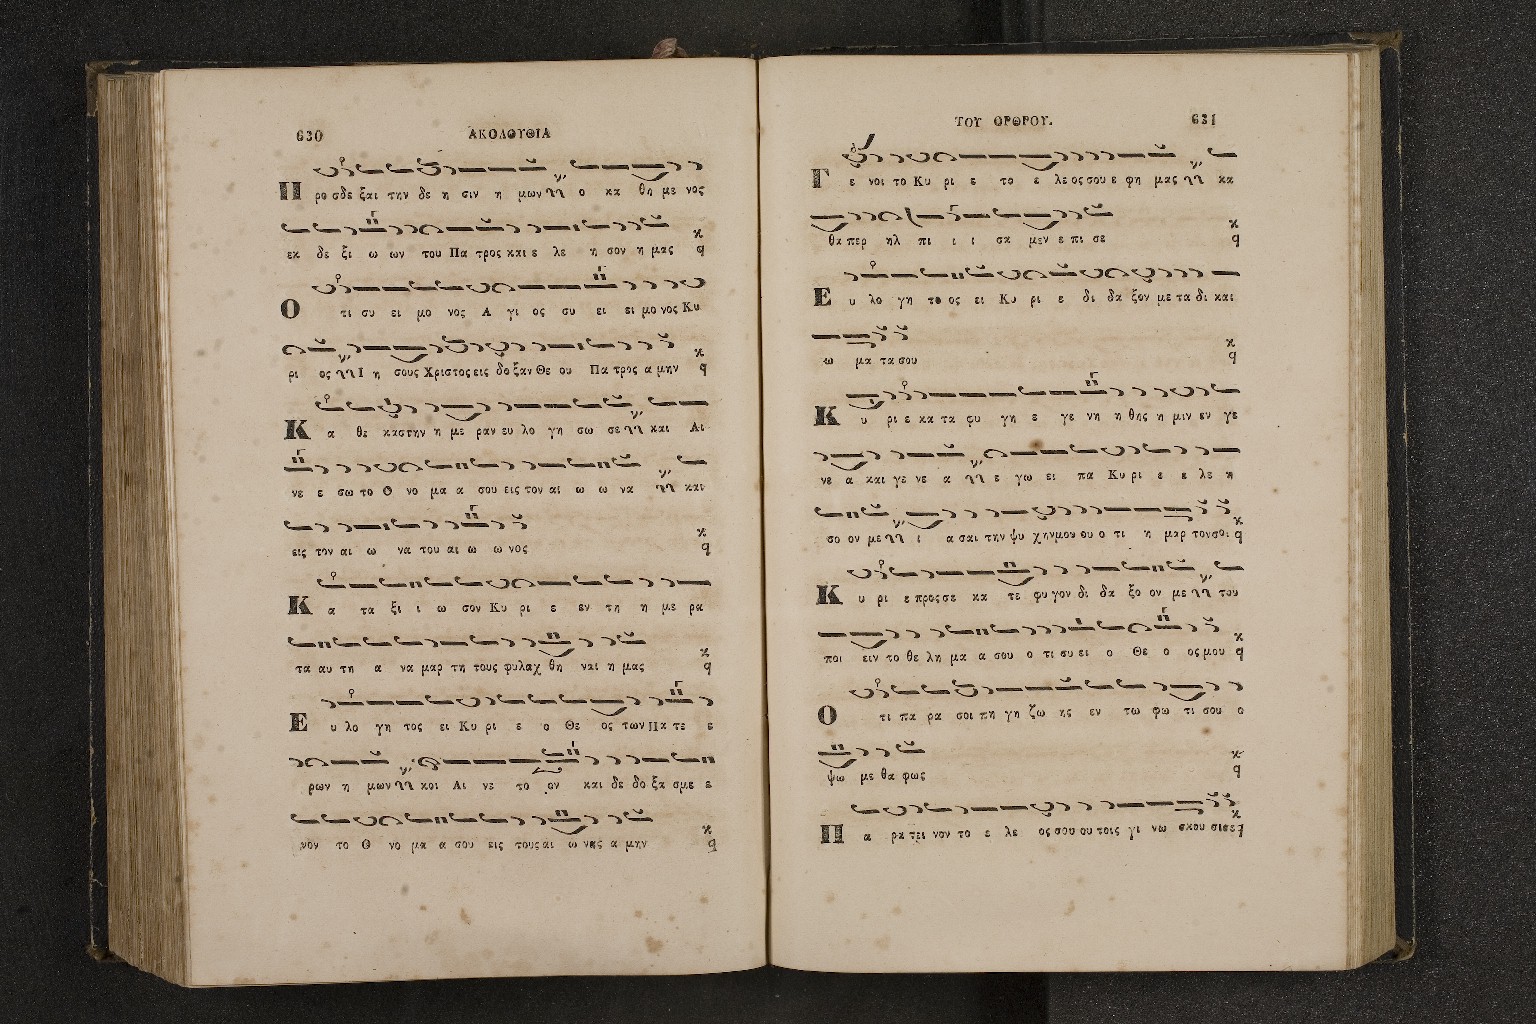 630 ΑΚΟΛΟΥΘΙΑ
Π ρο σδε ξαι την δε η σιν η μων ο κα θη με νος
εκ δε ξι ω ων του Πα τρος και ε λε η σον η μας
Ο τι συ ει μο νος Α γι ος συ ει ει μο νος Κυ
ρι ος Ι η σους Χριστος εις δο ξαν Θε ου Πα τρος α μην
Κ α θε καστην η με ραν ευ λο γη σω σε και Αι
νε ε σω το Ο νο μα α σου εις τον αι ω ω να και
εις τον αι ω να του αι ω ω νος
Κ α τα ξι ι ω σον Κυ ρι ε εν τη η με ρα
τα αυ τη α να μαρ τη τους φυλαχ θη ναι η μας
Ε υ λο γη τος ει Κυ ρι ε ο Θε ος των Πα τε ε
ρων η μων και Αι νε το ον και δε δο ξα σμε ε
νον το Ο νο μα α σου εις τους αι ω νας α μην
ΤΟΥ ΟΡΘΡΟΥ. 631
Γ ε νοι το Κυ ρι ε το ε λε ος σου ε φη μας κα
θα περ ηλ πι ι ι σα μεν ε πι σε
Ε υ λο γη το ος ει Κυ ρι ε δι δα ξον με τα δι και
ω μα τα σου
Κ υ ρι ε κα τα φυ γη ε γε νη η θης η μιν εν γε
νε α και γε νε α ε γω ει πα Κυ ρι ε ε λε η
σο ον με ι α σαι την ψυ χην μου ου ο τι η μαρ τον σοι
Κ υ ρι ε προς σε κα τε φυ γον δι δα ξο ον με του
ποι ειν το θε λη μα α σου ο τι συ ει ο Θε ο ος μου
Ο τι πα ρα σοι πη γη ζω ης εν τω φω τι σου ο
ψω με θα φως
Π α ρα τει νον το ε λε ος σου ου τοις γι νω σκου σι σε